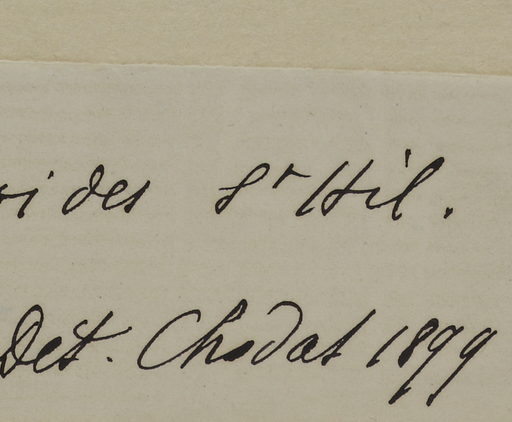 oides St Hil.
Det. Chodat 1899